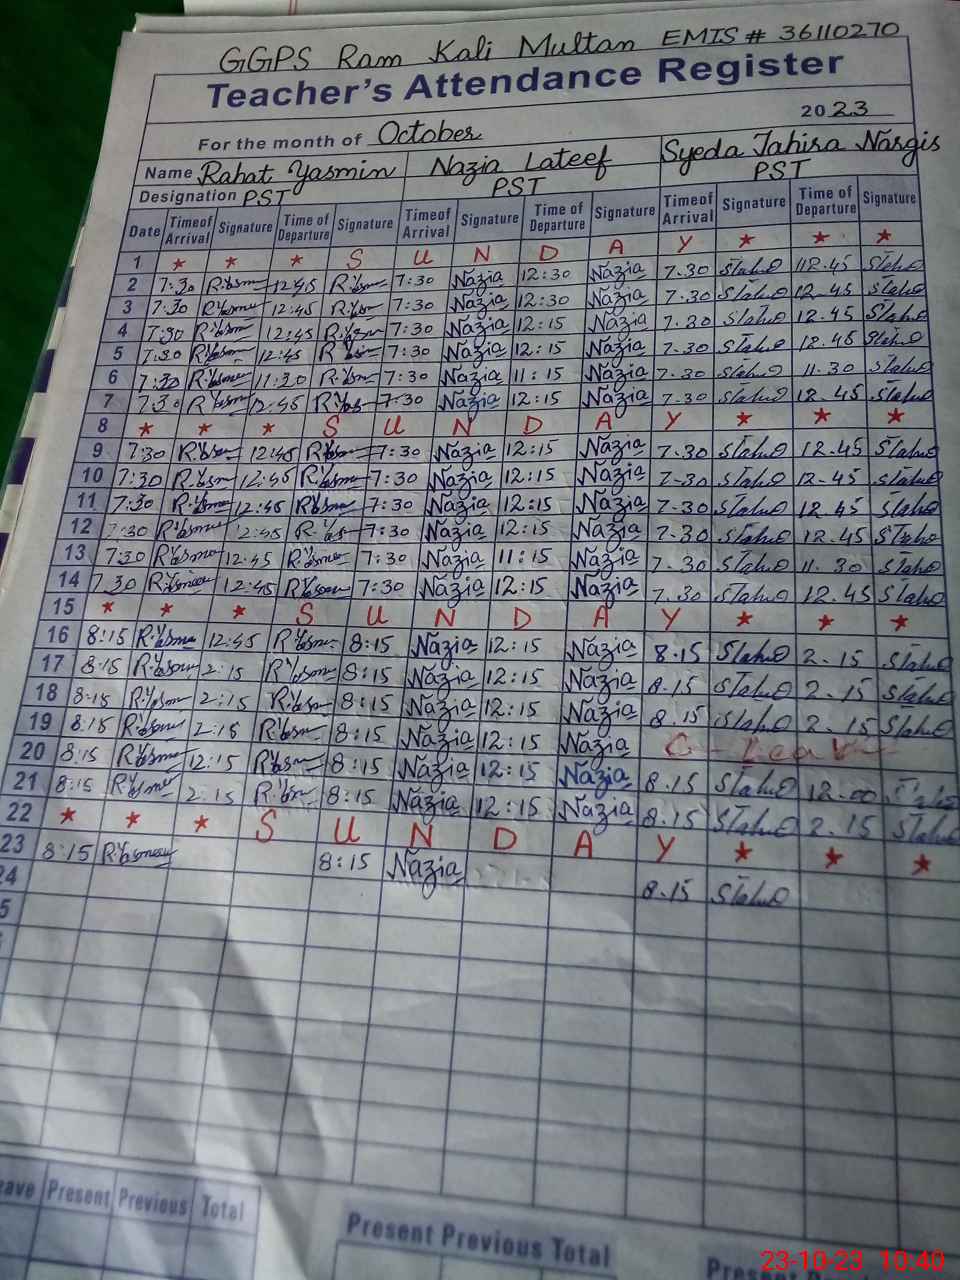 GGPS Ram Kali Multan EMIS # 36110270
Teacher's Attendance Register
For the month of October 2023
Name Rahat Yasmin Nazia Lateef Syeda Tahira Nargis
Designation PST PST PST
Date Timeof Arrival Signature Time of Departure Signature Timeof Arrival Signature Time of Departure Signature Timeof Arrival Signature Time of Departure Signature
1 * * * S U N D A Y * * *
2 7:30 R.Yasmin 12:45 R.Yasmin 7:30 Nazia 12:30 Nazia 7.30 Stahir 12.45 Stahir
3 7:30 R.Yasmin 12:45 R.Yasmin 7:30 Nazia 12:30 Nazia 7.30 Stahir 12.45 Stahir
4 7:30 R.Yasmin 12:45 R.Yasmin 7:30 Nazia 12:15 Nazia 7.30 Stahir 12.45 Stahir
5 7:30 R.Yasmin 12:45 R.Yasmin 7:30 Nazia 12:15 Nazia 7.30 Stahir 12.45 Stahir
6 7:30 R.Yasmin 11:30 R.Yasmin 7:30 Nazia 11:15 Nazia 7.30 Stahir 11.30 Stahir
7 7:30 R.Yasmin 12:45 R.Yasmin 7:30 Nazia 12:15 Nazia 7.30 Stahir 12.45 Stahir
8 * * * S U N D A Y * * *
9 7:30 R.Yasmin 12:45 R.Yasmin 7:30 Nazia 12:15 Nazia 7.30 Stahir 12.45 Stahir
10 7:30 R.Yasmin 12:45 R.Yasmin 7:30 Nazia 12:15 Nazia 7-30 Stahir 12-45 Stahir
11 7:30 R.Yasmin 12:45 R.Yasmin 7:30 Nazia 12:15 Nazia 7-30 Stahir 12.45 Stahir
12 7:30 R.Yasmin 12:45 R.Yasmin 7:30 Nazia 12:15 Nazia 7.30 Stahir 12.45 Stahir
13 7:30 R.Yasmin 12:45 R.Yasmin 7:30 Nazia 11:15 Nazia 7.30 Stahir 11.30 Stahir
14 7:30 R.Yasmin 12:45 R.Yasmin 7:30 Nazia 12:15 Nazia 7.30 Stahir 12.45 Stahir
15 * * * S U N D A Y * * *
16 8:15 R.Yasmin 12:45 R.Yasmin 8:15 Nazia 12:15 Nazia 8.15 Stahir 2.15 Stahir
17 8:15 R.Yasmin 2:15 R.Yasmin 8:15 Nazia 12:15 Nazia 8.15 Stahir 2.15 Stahir
18 8:15 R.Yasmin 2:15 R.Yasmin 8:15 Nazia 12:15 Nazia 8.15 Stahir 2.15 Stahir
19 8:15 R.Yasmin 2:15 R.Yasmin 8:15 Nazia 12:15 Nazia C-Leave
20 8:15 R.Yasmin 12:15 R.Yasmin 8:15 Nazia 12:15 Nazia 8.15 Stahir 12.00 Stahir
21 8:15 R.Yasmin 2:15 R.Yasmin 8:15 Nazia 12:15 Nazia 8.15 Stahir 2.15 Stahir
22 * * * S U N D A Y * * *
23 8:15 R.Yasmin 8:15 Nazia 8.15 Stahir
24
5
eave Present Previous Total
Present Previous Total
Prese
23-10-23 10:40